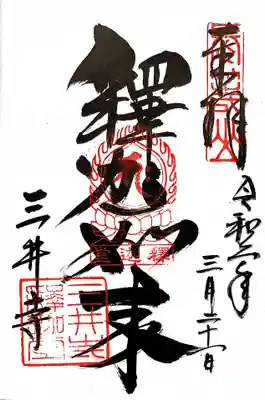 奉拝
令和二年
三月二十一日
釋迦如来
三井寺